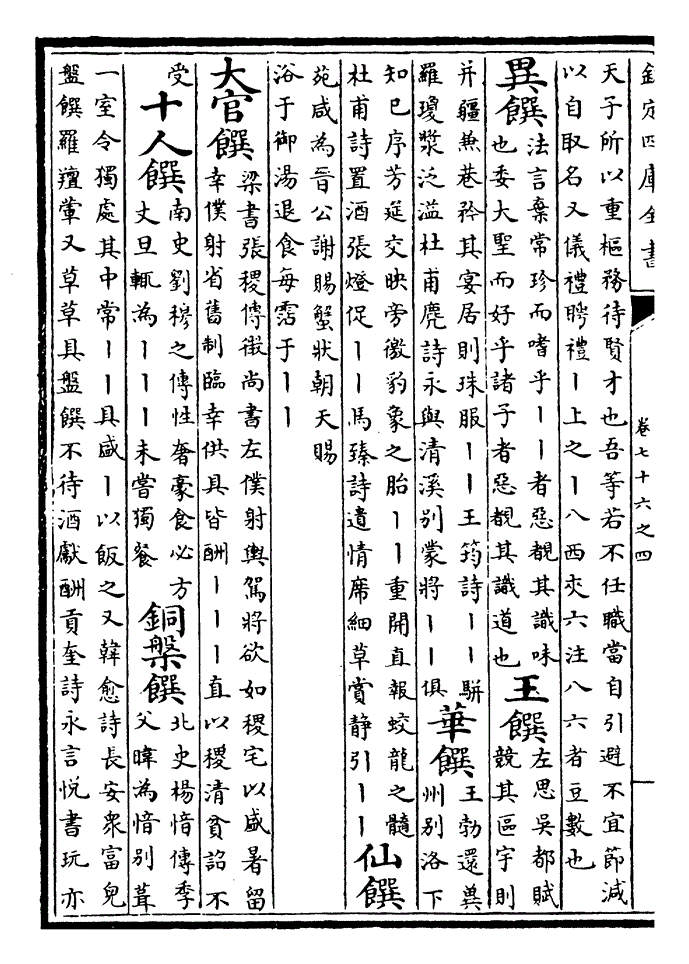 欽定四庫全書
卷七十六之四
天子所以重樞務待賢才也吾等若不任職當自引避不宜節減
以自取名又儀禮聘禮丨上之丨八西夾六注八六者豆數也
異饌
法言棄常珍而嗜乎丨丨者惡覩其識味
也委大聖而好乎諸子者惡覩其識道也
王饌
左思吳都賦
競其區宇則
并疆兼巷矜其宴居則珠服丨丨王筠詩丨丨駢
羅瓊漿泛溢杜甫麂詩永與清溪别蒙將丨丨俱
華饌
王勃還兾
州别洛下
知已序芳筵交映旁徵豹象之胎丨丨重開直報蛟龍之髓
杜甫詩置酒張燈促丨丨馬臻詩遺情席細草賞静引丨丨
仙饌
苑咸為晉公謝賜蟹狀朝天賜
浴于御湯退食每霑于丨丨
大官饌
梁書張稷傳徵尚書左僕射輿駕將欲如稷宅以盛暑留
幸僕射省舊制臨幸供具皆酬丨丨丨直以稷清貧詔不
受
十人饌
南史劉穆之傳性奢豪食必方
丈旦輒為丨丨丨未嘗獨餐
銅槃饌
北史楊愔傳季
父暐為愔别葺
一室令獨處其中常丨丨具盛丨以飯之又韓愈詩長安衆富兒
盤饌羅羶葷又草草具盤饌不待酒獻酬貢奎詩永言悦書玩亦